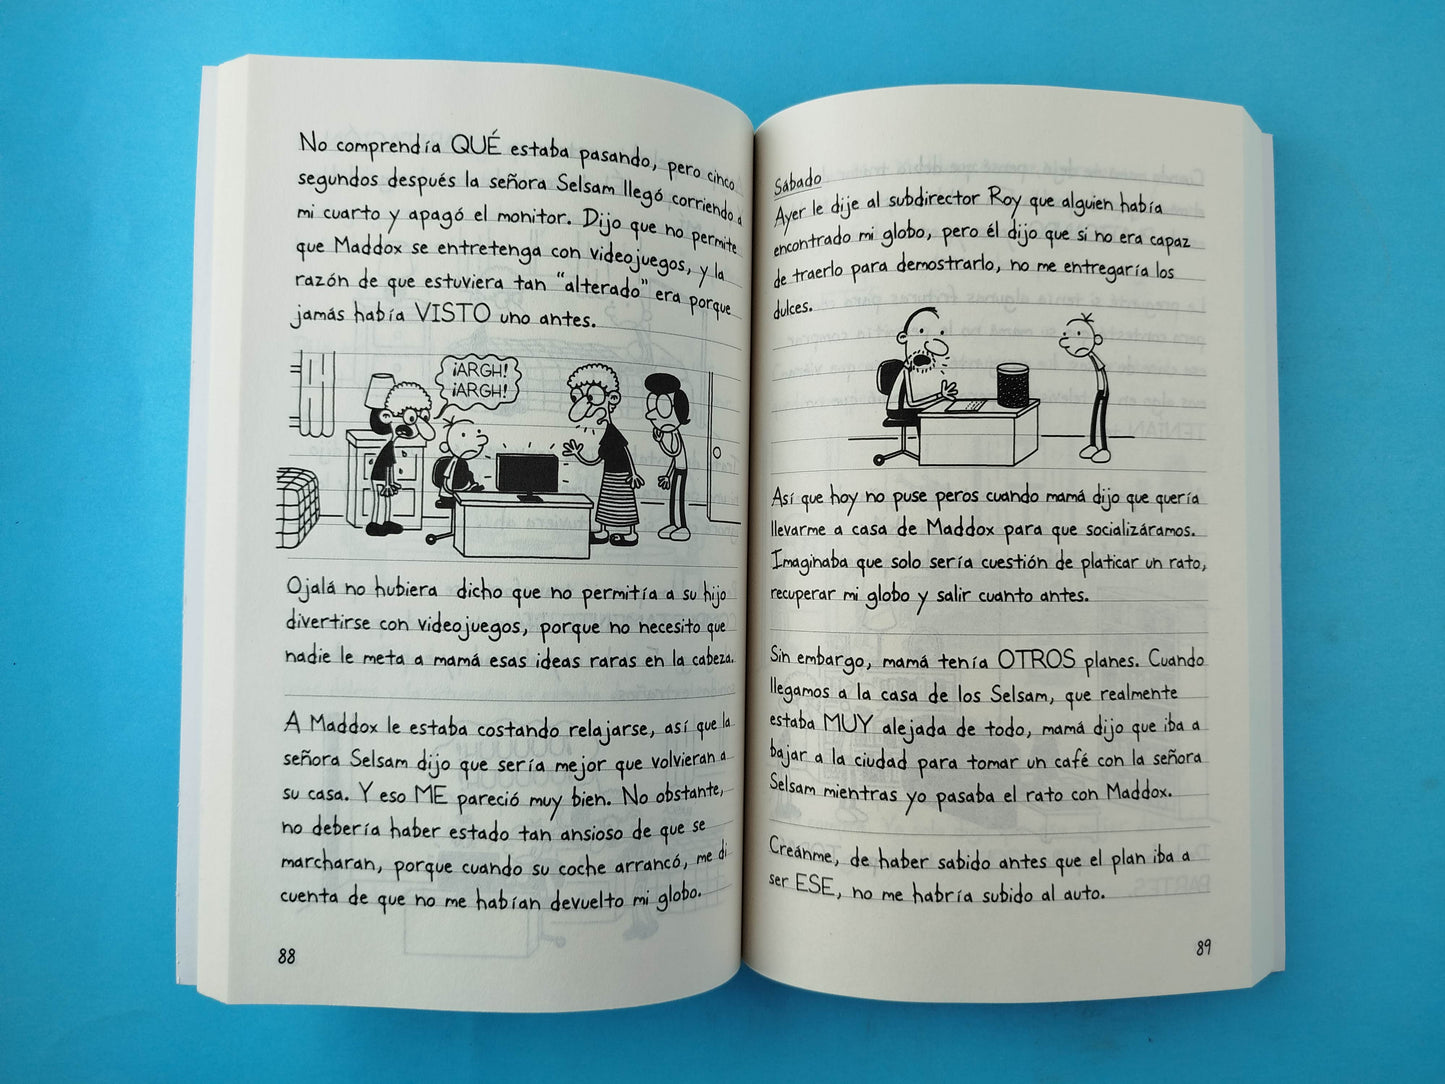 No comprendía QUÉ estaba pasando, pero cinco
segundos después la señora Selsam llegó corriendo a
mi cuarto y apagó el monitor. Dijo que no permite
que Maddox se entretenga con videojuegos, y la
razón de que estuviera tan “alterado” era porque
jamás había VISTO uno antes.
¡ARGH!
¡ARGH!
Ojalá no hubiera dicho que no permitía a su hijo
divertirse con videojuegos, porque no necesito que
nadie le meta a mamá esas ideas raras en la cabeza.
A Maddox le estaba costando relajarse, así que la
señora Selsam dijo que sería mejor que volvieran a
su casa. Y eso ME pareció muy bien. No obstante,
no debería haber estado tan ansioso de que se
marcharan, porque cuando su coche arrancó, me di
cuenta de que no me habían devuelto mi globo.
88
Sábado
Ayer le dije al subdirector Roy que alguien había
encontrado mi globo, pero él dijo que si no era capaz
de traerlo para demostrarlo, no me entregaría los
dulces.
Así que hoy no puse peros cuando mamá dijo que quería
llevarme a casa de Maddox para que socializáramos.
Imaginaba que solo sería cuestión de platicar un rato,
recuperar mi globo y salir cuanto antes.
Sin embargo, mamá tenía OTROS planes. Cuando
llegamos a la casa de los Selsam, que realmente
estaba MUY alejada de todo, mamá dijo que iba a
bajar a la ciudad para tomar un café con la señora
Selsam mientras yo pasaba el rato con Maddox.
Creánme, de haber sabido antes que el plan iba a
ser ESE, no me habría subido al auto.
89